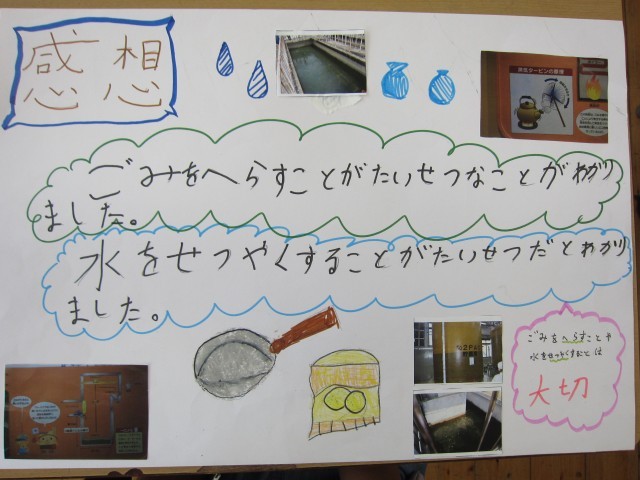 感想
ごみをへらすことがたいせつなことがわかり
ました。
水をせつやくすることがたいせつだとわかり
ました。
ごみをへらすことや
水をせつやくすることは
大切